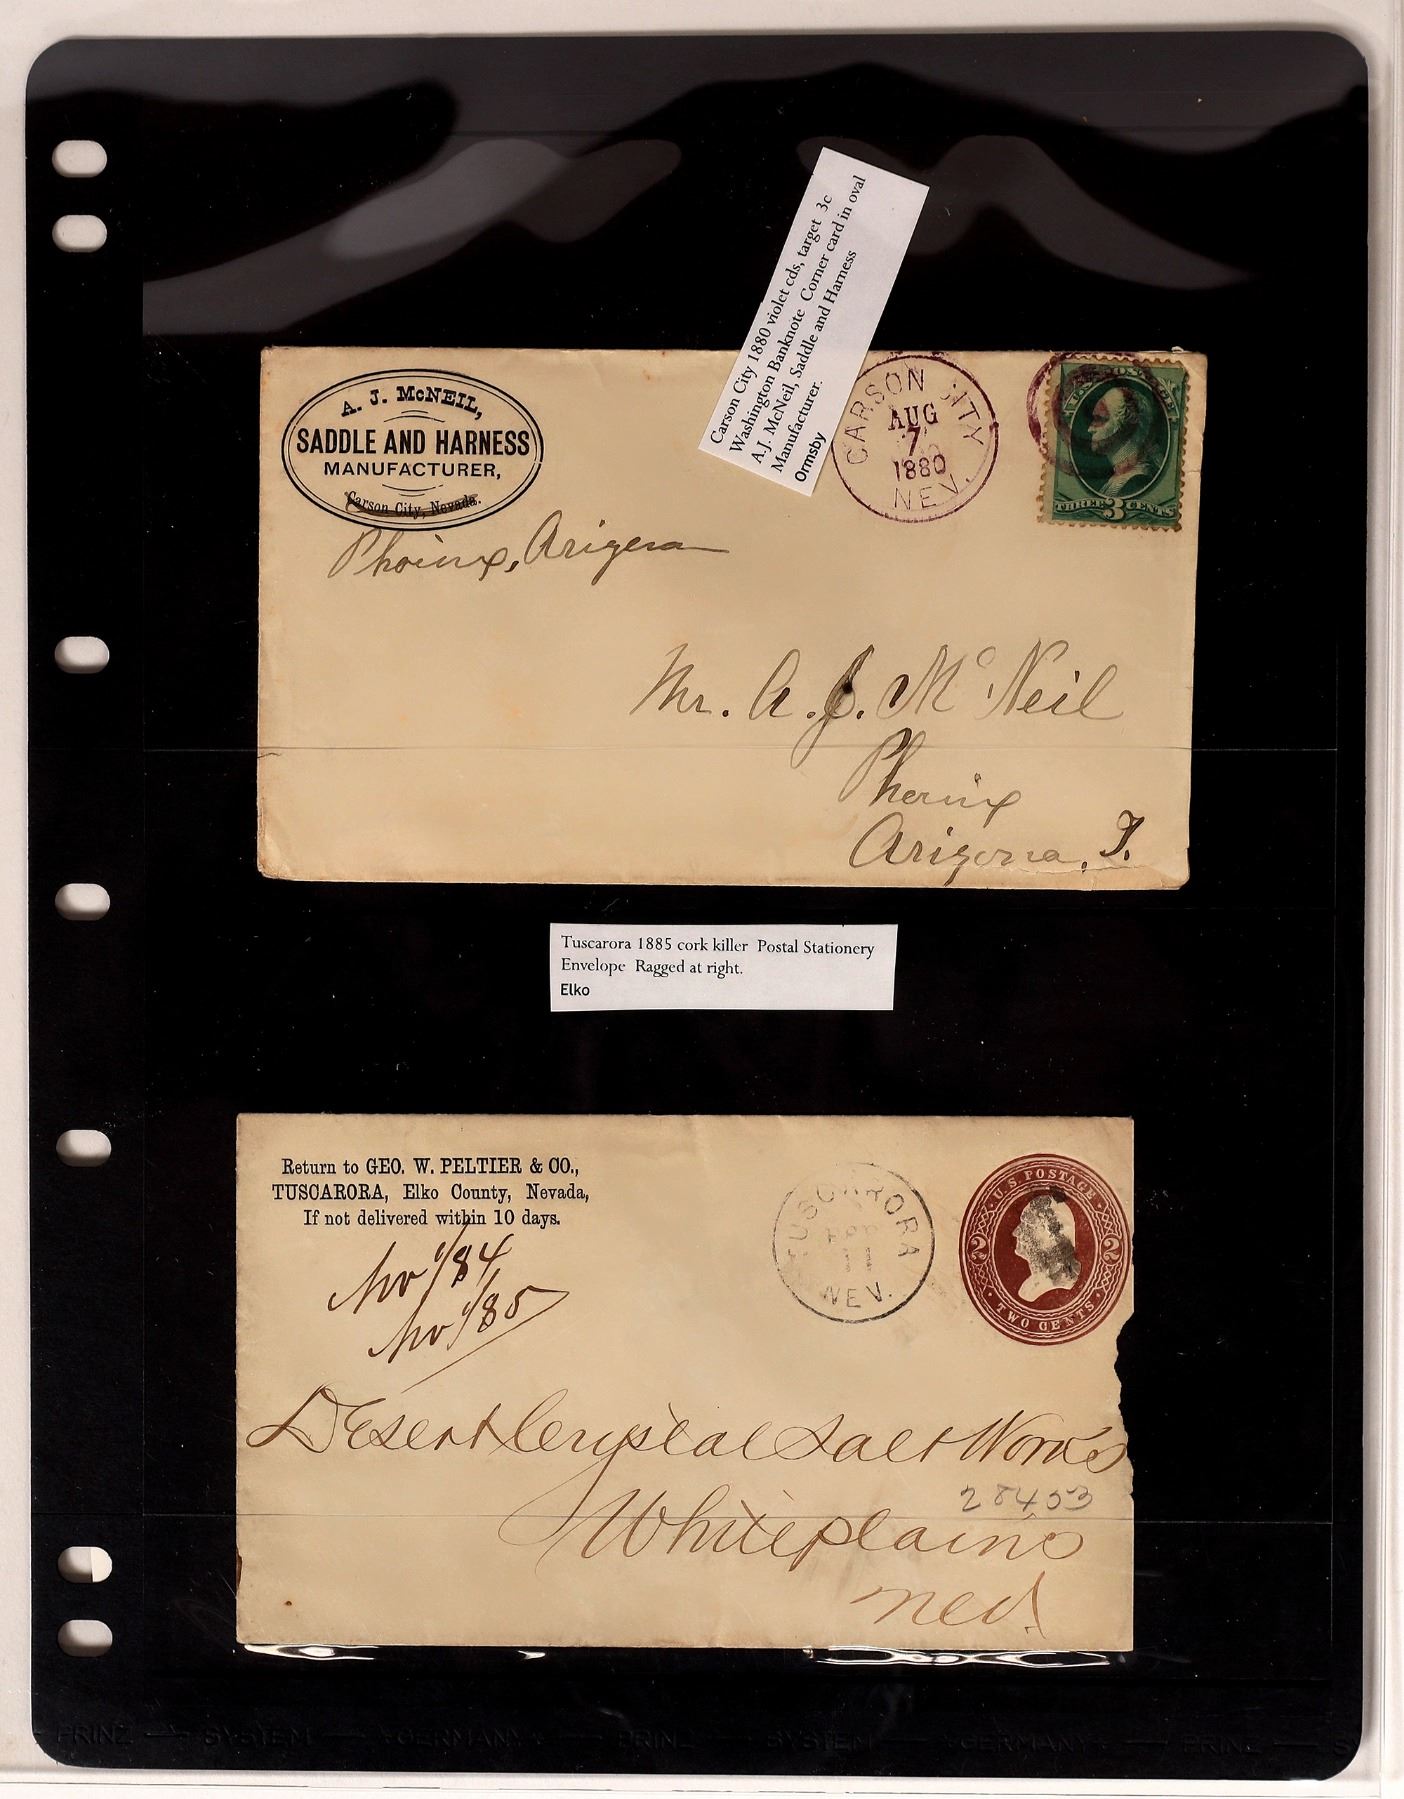 Carson City 1880 violet cds, target 3c
Washington Banknote Corner card in oval
A.J. McNeil, Saddle and Harness
Manufacturer.
Ormsby
A. J. McNEIL,
SADDLE AND HARNESS
MANUFACTURER,
Carson City, Nevada.
Phoenix, Arizona
CARSON CITY
AUG
7
1880
NEV.
THREE 3 CENTS
Mr. A. J. McNeil
Phoenix
Arizona. T.
Tuscarora 1885 cork killer Postal Stationery
Envelope Ragged at right.
Elko
Return to GEO. W. PELTIER & CO.,
TUSCARORA, Elko County, Nevada,
If not delivered within 10 days.
TUSCARORA
11
NEV.
U.S POSTAGE
2 2
TWO CENTS
/84
/85
Desert Crystal Salt Works
28453
Whiteplains
Nev.
PRINZ SYSTEM GERMANY PRINZ SYSTEM GERMANY PRINZ S